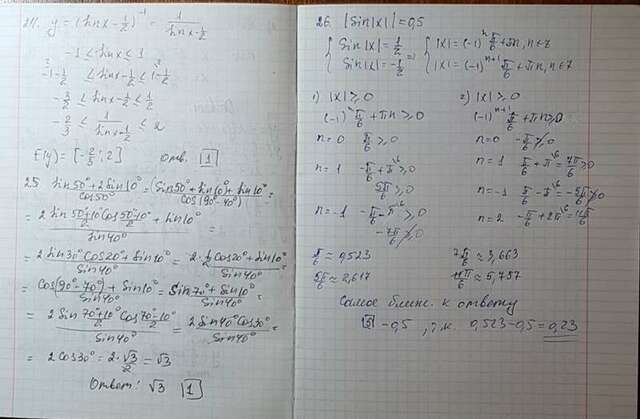 24. y = (sin x - 1/2)^-1 = 1/(sin x - 1/2)
-1 ≤ sin x ≤ 1
-1 - 1/2 ≤ sin x - 1/2 ≤ 1 - 1/2
-3/2 ≤ sin x - 1/2 ≤ 1/2
-2/3 ≤ 1/(sin x + 1/2) ≤ 2
E(y) = [-2/3; 2] Отв. 1
25. (sin50° + 2sin10°)/cos50° = ((sin50° + sin10°) + sin10°)/cos(90°-40°) =
= (2 sin (50+10°)/2 cos (50-10°)/2 + sin10°)/sin40° =
= (2 sin30° cos20° + sin10°)/sin40° = (2·1/2 cos20° + sin10°)/sin40° =
= (cos(90°-70°) + sin10°)/sin40° = (sin70° + sin10°)/sin40° =
= (2 sin (70+10°)/2 cos (70-10°)/2)/sin40° = (2 sin40° cos30°)/sin40° =
= 2cos30° = 2·√3/2 = √3
Ответ: √3 1
26. |sin|x|| = 0,5
{ sin|x| = 1/2 { |x| = (-1)^n π/6 + πn, n∈Z
{ sin|x| = -1/2 => { |x| = (-1)^(n+1) π/6 + πn, n∈Z
1) |x| ≥ 0 2) |x| ≥ 0
(-1)^n π/6 + πn ≥ 0 (-1)^(n+1) π/6 + πn ≥ 0
n=0 π/6 ≥ 0 n=0 -π/6 ≱ 0
n=1 -π/6 + π ≥ 0 n=1 π/6 + π = 7π/6 ≥ 0
5π/6 ≥ 0 n=-1 π/6 - π = -5π/6 ≱ 0
n=-1 -π/6 - π ≥ 0 n=2 -π/6 + 2π = 11π/6
-7π/6 ≱ 0
π/6 ≈ 0,523 7π/6 ≈ 3,663
5π/6 ≈ 2,617 11π/6 ≈ 5,757
Самое ближ. к ответу
3 - 0,5, т.к. 0,523-0,5=0,23